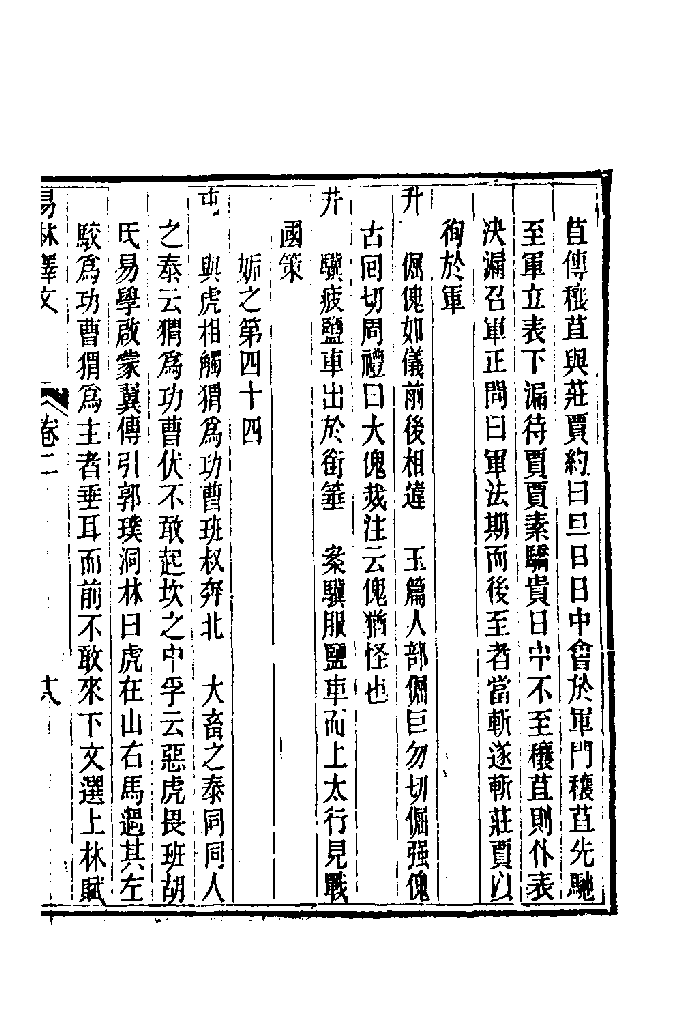 苴傳穰苴與莊賈約曰旦日日中會於軍門穰苴先馳
至軍立表下漏待賈賈素驕貴日中不至穰苴則仆表
決漏召軍正問曰軍法期而後至者當斬遂斬莊賈以
徇於軍
升　倔傀如儀前後相違　玉篇人部倔巨勿切倔强傀
古回切周禮曰大傀烖注云傀猶怪也
井　驥疲鹽車出於銜箠　案驥服鹽車而上太行見戰
國策
姤之第四十四
屯　與虎相觸猬爲功曹班叔奔北　大畜之泰同同人
之泰云猬爲功曹伏不敢起坎之中孚云惡虎畏班胡
氏易學啟蒙翼傳引郭璞洞林曰虎在山右馬過其左
駮爲功曹猬爲主者垂耳而前不敢來下文選上林賦
易林釋文　卷二　十八